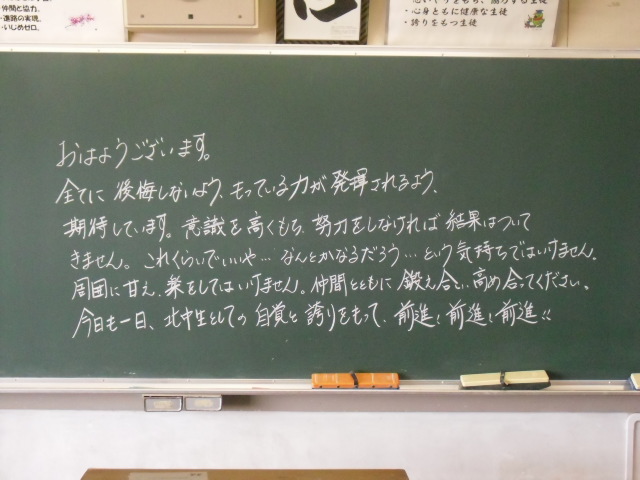 ・仲間と協力。
・進路の実現。
・いじめゼロ。
・心身ともに健康な生徒
・誇りをもつ生徒
おはようございます。
全てに後悔しないよう、もっている力が発揮されるよう、
期待しています。意識を高くもち、努力をしなければ結果はついて
きません。これくらいでいいや…なんとかなるだろう…という気持ちではいけません。
周囲に甘え、楽をしてはいけません。仲間とともに鍛え合い、高め合ってください。
今日も一日、北中生としての自覚と誇りをもって、前進!前進!前進!!